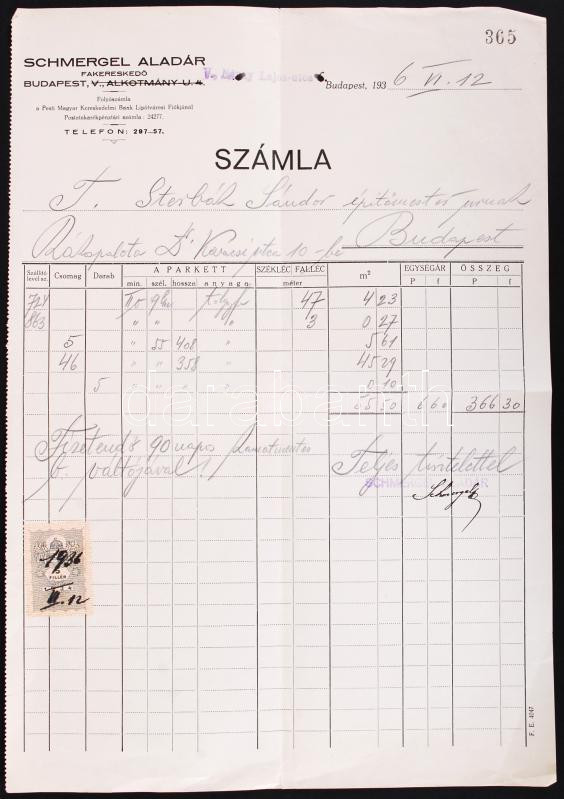 365
SCHMERGEL ALADÁR
FAKERESKEDŐ
BUDAPEST, V., ALKOTMÁNY U. 4.
Folyószámla
a Pesti Magyar Kereskedelmi Bank Lipótvárosi Fiókjánál
Postatakarékpénztári számla: 24277.
TELEFON: 297-57.
Budapest, 1936 VI. 12
SZÁMLA
T. Sterbák Sándor építőmester urnak
Rákospalota Budapest
Szállítólevél sz. Csomag Darab A PARKETT SZÉKLÉC FALLÉC m² EGYSÉGÁR ÖSSZEG
min. szél. hossza anyaga méter P f P f
724 II/o 9 tölgyfa 47 4 23
863 " " " 3 0 27
5 " 55 408 " 5 61
46 " " 358 " 45 29
5 " " " " 0 10
55 50 6 60 366 30
Fizetendő 90 napos kamatmentes
b. váltójával! Teljes tisztelettel
SCHMERGEL ALADÁR
1936
FILLÉR
VI. 12
F. E. 4047
darabanth